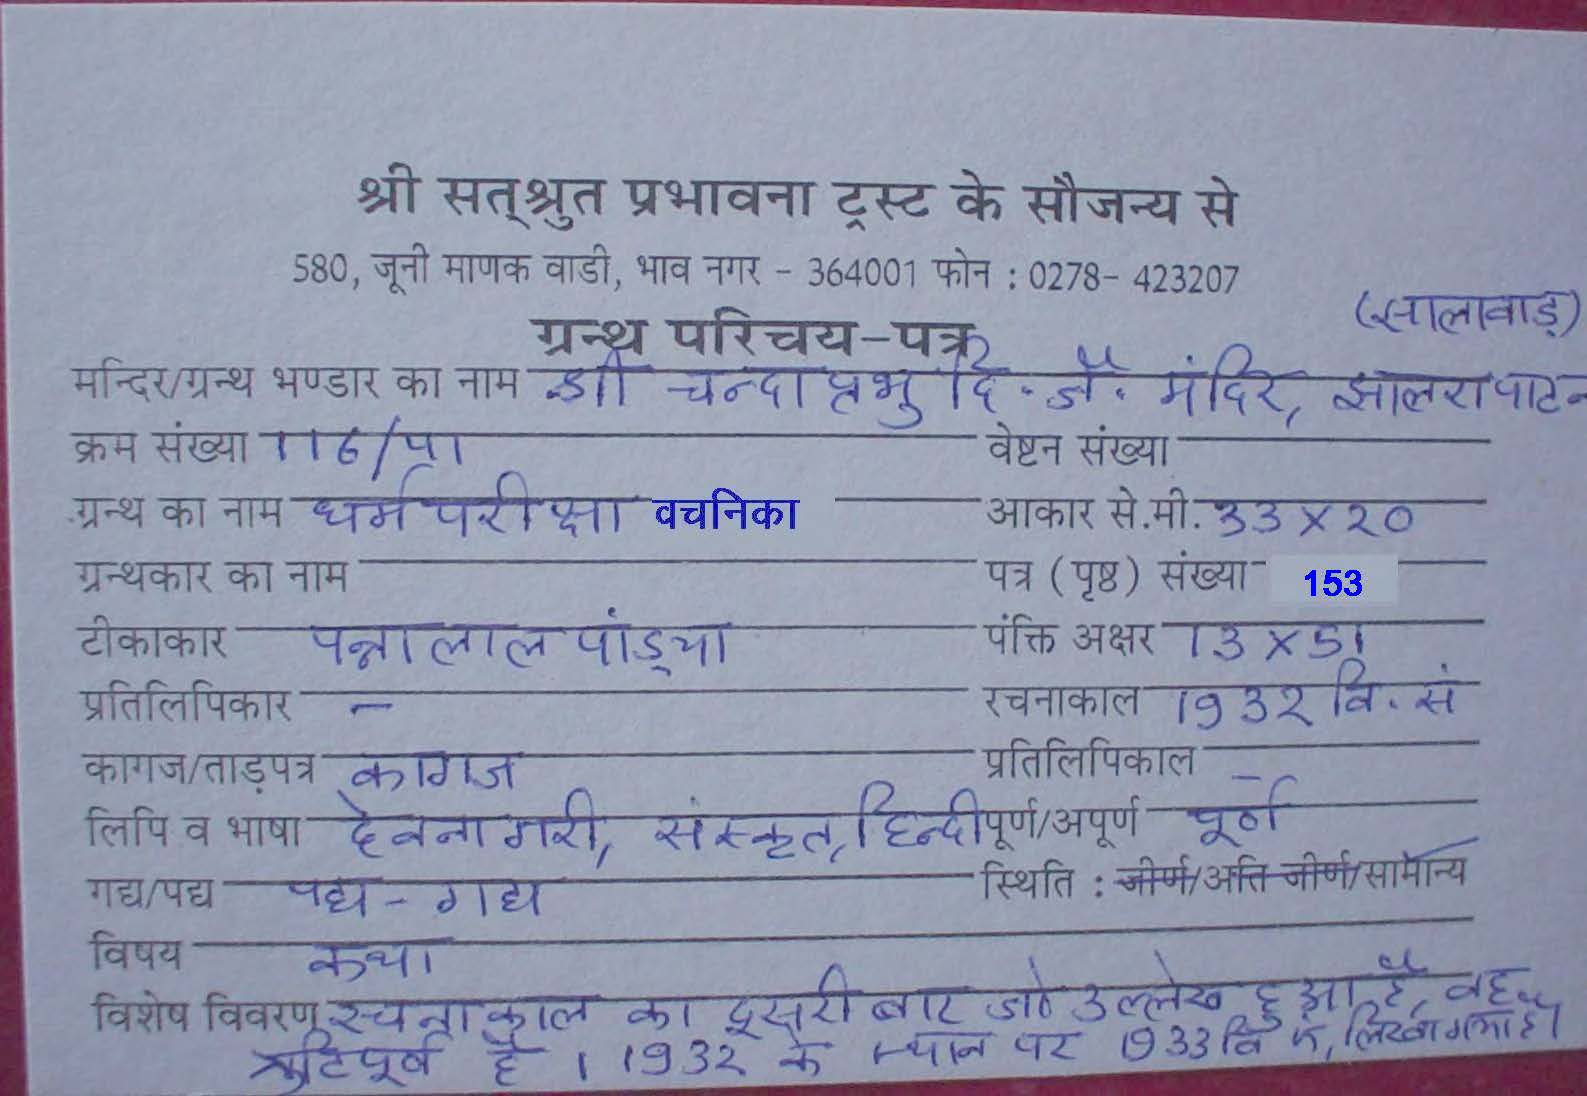 श्री सत्‌श्रुत प्रभावना ट्रस्ट के सौजन्य से
580, जूनी माणक वाडी, भाव नगर - 364001 फोन : 0278- 423207
ग्रन्थ परिचय-पत्र
(झालावाड़)
मन्दिर/ग्रन्थ भण्डार का नाम श्री चन्दाप्रभु दि. जै. मंदिर, झालरापाटन
क्रम संख्या 116/पा वेष्टन संख्या
ग्रन्थ का नाम धर्मपरीक्षा वचनिका आकार से.मी. 33 x 20
ग्रन्थकार का नाम पत्र (पृष्ठ) संख्या 153
टीकाकार पन्नालाल पांड्या पंक्ति अक्षर 13 x 51
प्रतिलिपिकार - रचनाकाल 1932 वि. सं
कागज/ताड़पत्र कागज प्रतिलिपिकाल -
लिपि व भाषा देवनागरी, संस्कृत, हिन्दी पूर्ण/अपूर्ण पूर्ण
गद्य/पद्य पद्य - गद्य स्थिति : जीर्ण/अति जीर्ण/सामान्य
विषय कथा
विशेष विवरण रचनाकाल का दूसरी बार जो उल्लेख हुआ है, वह
त्रुटिपूर्ण है। 1932 के स्थान पर 1933 वि लिखा गया है।